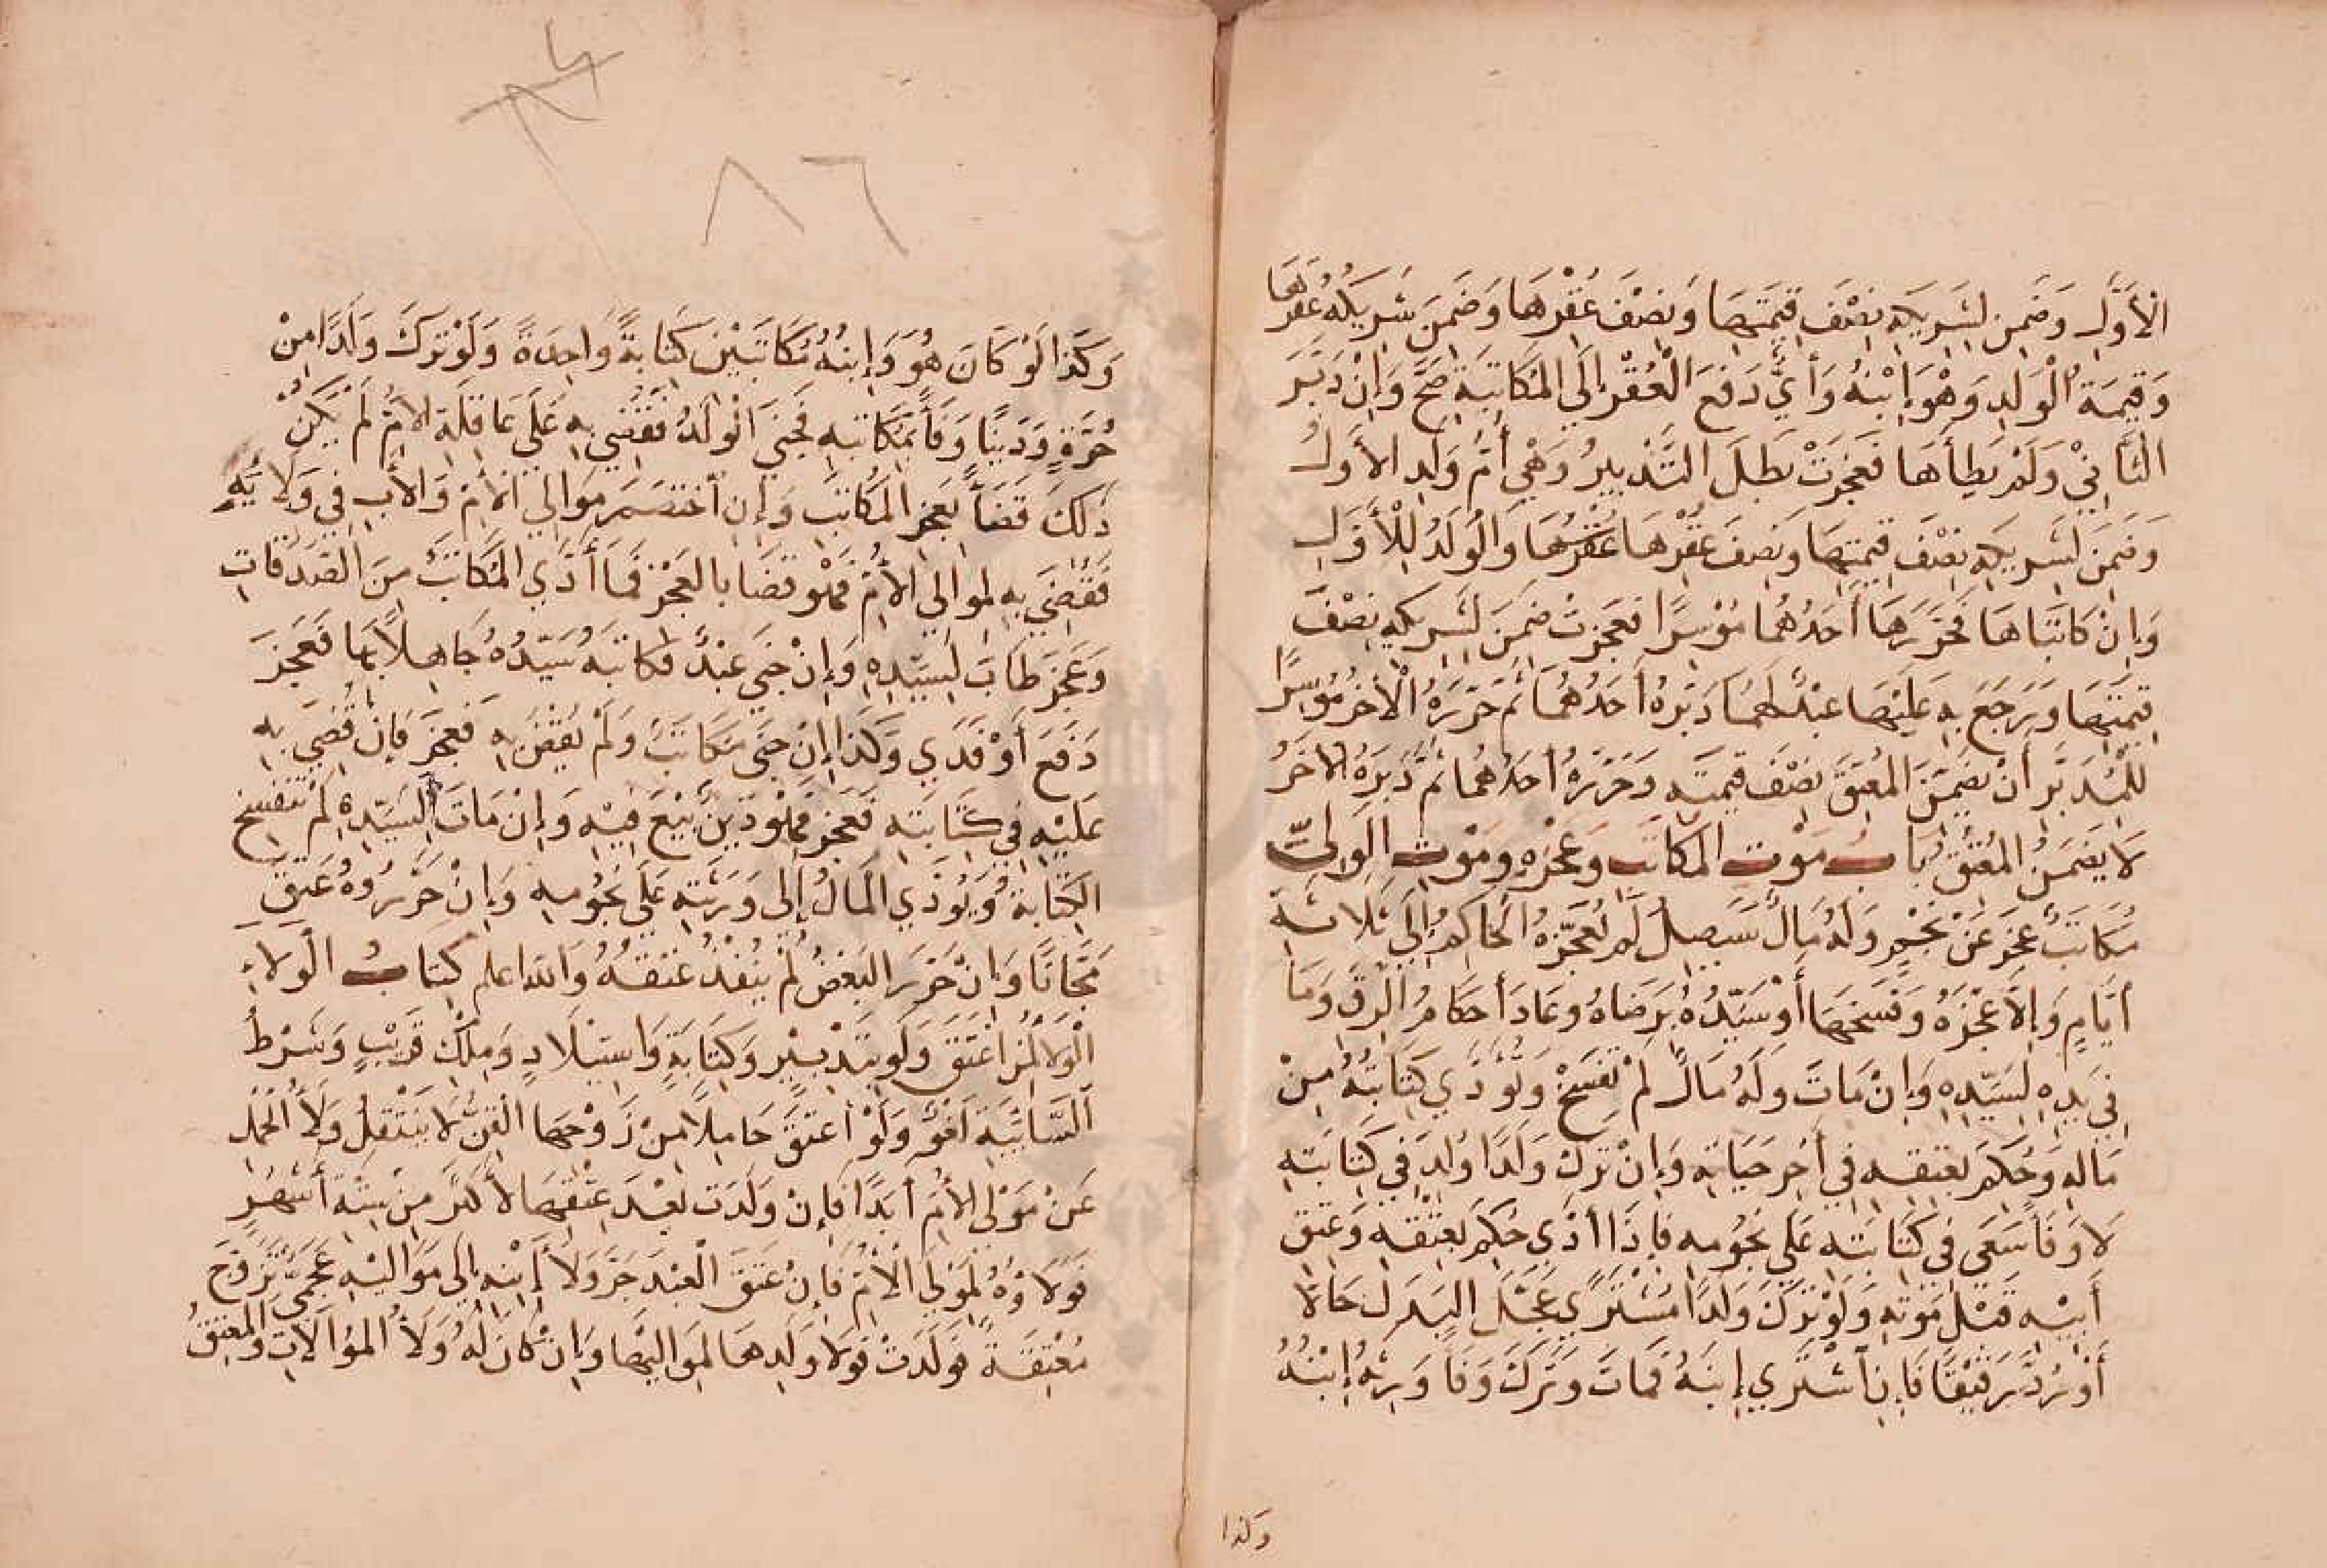 الْأَوَّلِ وَضَمِنَ لِشَرِيكِهِ نِصْفَ قِيمَتِهَا وَنِصْفَ عُقْرِهَا وَضَمِنَ شَرِيكُهُ عُقْرَهَا
وَقِيمَةَ الْوَلَدِ وَهُوَ إِبْنُهُ وَأَيٌّ دَفَعَ الْعُقْرَ إِلَى الْمُكَاتَبَةِ صَحَّ وَإِنْ دَبَّرَ
الثَّانِي وَلَمْ يَطِأْهَا فَعَجَزَتْ بَطَلَ التَّدْبِيرُ وَهِيَ أُمُّ وَلَدِ الْأَوَّلِ
وَضَمِنَ لِشَرِيكِهِ نِصْفَ قِيمَتِهَا وَنِصْفَ عُقْرِهَا عُقْرُهَا وَالْوَلَدُ لِلْأَوَّلِ
وَإِنْ كَاتَبَاهَا فَحَرَّرَهَا أَحَدُهُمَا مُوْسِرًا فَعَجَزَتْ ضَمِنَ لِشَرِيكِهِ نِصْفَ
قِيمَتِهَا وَيَرْجَعُ بِهِ عَلَيْهَا عَبْدٌ لَهُمَا دَبَّرَهُ أَحَدُهُمَا ثُمَّ حَرَّرَهُ الْآخَرُ مُوسِرًا
لِلْمُدَبِّرِ أَنْ يُضَمِّنَ الْمُعْتِقَ نِصْفَ قِيمَتِهِ وَحَرَّرَهُ أَحَدُهُمَا ثُمَّ دَبَّرَهُ الْآخَرُ
لَا يَضْمَنُ الْمُعْتِقُ بَابُ مَوْتِ الْمُكَاتَبِ وَعَجْزِهِ وَمَوْتِ الْمَوْلَى
مُكَاتَبٌ عَجَزَ عَنْ نَجْمٍ وَلَهُ مَالٌ سَيَصِلُ لَمْ يُعَجِّزْهُ الْحَاكِمُ إِلَى ثَلَاثَةِ
أَيَّامٍ وَإِلَّا عَجَّزَهُ وَفَسَخَهَا أَوْ سَيِّدُهُ بِرِضَاهُ وَعَادَ أَحْكَامُ الرِّقِّ وَمَا
فِي يَدِهِ لِسَيِّدِهِ وَإِنْ مَاتَ وَلَهُ مَالٌ لَمْ تُفْسَخْ وَتُؤَدَّي كِتَابَتُهُ مِنْ
مَالِهِ وَحُكِمَ بِعِتْقِهِ فِي آخِرِ حَيَاتِهِ وَإِنْ تَرَكَ وَلَدًا وُلِدَ فِي كِتَابَتِهِ
لَا وَفَاءً سَعَى فِي كِتَابَتِهِ عَلَى نُجُومِهِ فَإِذَا أَدَّي حُكِمَ بِعِتْقِهِ وَعِتْقِ
أَبِيْهِ قَبْلَ مَوْتِهِ وَلَوْ تَرَكَ وَلَدًا مُشْتَرًي عَجَّلَ الْبَدَلَ حَالًا
أَوْ رُدَّ رَقِيْقًا فَإِنِ اشْتَرَي إِبْنَهُ فَمَاتَ وَتَرَكَ وَفَاءً وَرِثَهُ إِبْنُهُ
وكذا
٨٦
وَكَذَا لَوْ كَانَ هُوَ وَإِبْنُهُ مُكَاتَبَيْنِ كِتَابَةً وَاحِدَةً وَلَوْ تَرَكَ وَلَدًا مِنْ
حُرَّةٍ وَدَيْنًا وَفَاءً بِمُكَاتَبِهِ فَجَنَى الْوَلَدُ فَقُضِيَ بِهِ عَلَى عَاقِلَةِ الْأُمِّ لَمْ يَكُنْ
ذَلِكَ قَضَاءً بِعَجْزِ الْمُكَاتَبِ وَإِنِ اخْتَصَمَ مَوَالِي الْأُمِّ وَالْأَبِ فِي وَلَائِهِ
فَقُضِيَ بِهِ لِمَوَالِي الْأُمِّ فَهُوَ قَضَا بِالْعَجْزِ فَمَا أَدَّي الْمُكَاتَبُ مِنَ الصَّدَقَاتِ
وَعَجَزَ طَابَ لِسَيِّدِهِ وَإِنْ جَنَى عَبْدٌ فَكَاتَبَهُ سَيِّدُهُ جَاهِلًا بِهَا فَعَجَزَ
دَفَعَ أَوْ فَدَي وَكَذَا إِنْ جَنَى مُكَاتَبٌ وَلَمْ يُقْضَ بِهِ فَعَجَزَ فَإِنْ قُضِيَ بِهِ
عَلَيْهِ فِي كِتَابَتِهِ فَعَجَزَ فَهُوَ دَيْنٌ بِيْعَ فِيْهِ وَإِنْ مَاتَ السَّيِّدُ لَمْ تَنْفَسِخِ
الْكِتَابَةُ وَيُؤَدِّي الْمَالَ إِلَى وَرَثَتِهِ عَلَى نُجُومِهِ وَإِنْ حَرَّرُوهُ عَتَقَ
مَجَّانًا وَإِنْ حَرَّرَ الْبَعْضُ لَمْ يَنْفُذْ عِتْقُهُ وَاللهُ اعلم كِتَابُ الْوَلَاءِ
الْوَلَاءُ لِمَنْ اعْتَقَ وَلَوْ بِتَدْبِيْرٍ وَكِتَابَةٍ وَاسْتِيْلَادٍ وَمِلْكِ قَرِيْبٍ وَشَرْطُ
السَّائِبَةِ لَغْوٌ وَلَوْ أَعْتَقَ حَامِلًا مِنْ زَوْجِهَا الْقِنِّ لَا يَنْتَقِلُ وَلَاءُ الْحَمْلِ
عَنْ مَوْلَى الْأُمِّ أَبَدًا فَإِنْ وَلَدَتْ بَعْدَ عِتْقِهَا لِأَكْثَرَ مِنْ سِتَّةِ أَشْهُرٍ
فَوَلَاؤُهُ لِمَوْلَى الْأُمِّ فَإِنْ عَتَقَ الْعَبْدُ جَرَّ وَلَاءَ إِبْنِهِ إِلَى مَوَالِيْهِ عَجَمِيٌّ تَزَوَّجَ
مُعْتَقَةً فَوَلَدَتْ فَوَلَاءُ وَلَدِهَا لِمَوَالِيْهَا وَإِنْ كَانَ لَهُ وَلَاءُ الْمُوَالَاتِ وَالْمُعْتِقُ